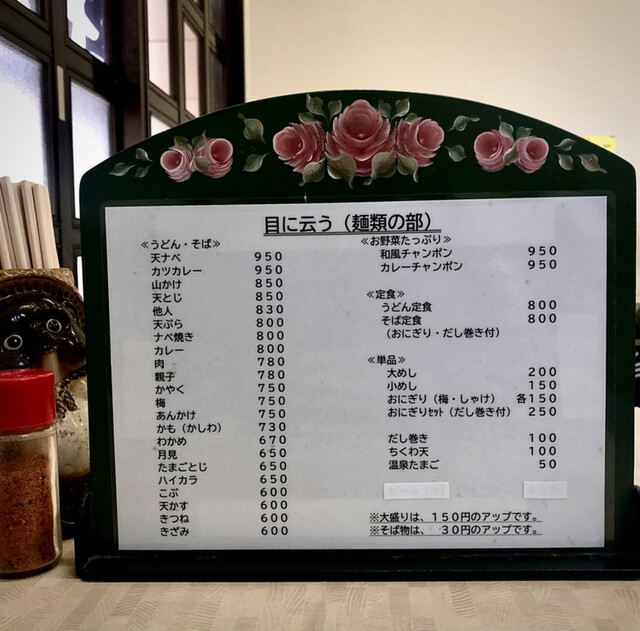 目に云う（麺類の部）
≪うどん・そば≫
天ナベ 950
カツカレー 950
山かけ 850
天とじ 850
他人 830
天ぷら 800
ナベ焼き 800
カレー 800
肉 780
親子 780
かやく 750
梅 750
あんかけ 750
かも（かしわ） 730
わかめ 670
月見 650
たまごとじ 650
ハイカラ 650
こぶ 600
天かす 600
きつね 600
きざみ 600
≪お野菜たっぷり≫
和風チャンポン 950
カレーチャンポン 950
≪定食≫
うどん定食 800
そば定食 800
（おにぎり・だし巻き付）
≪単品≫
大めし 200
小めし 150
おにぎり（梅・しゃけ） 各150
おにぎりｾｯﾄ（だし巻き付） 250
だし巻き 100
ちくわ天 100
温泉たまご 50
※大盛りは、150円のアップです。
※そば物は、 30円のアップです。